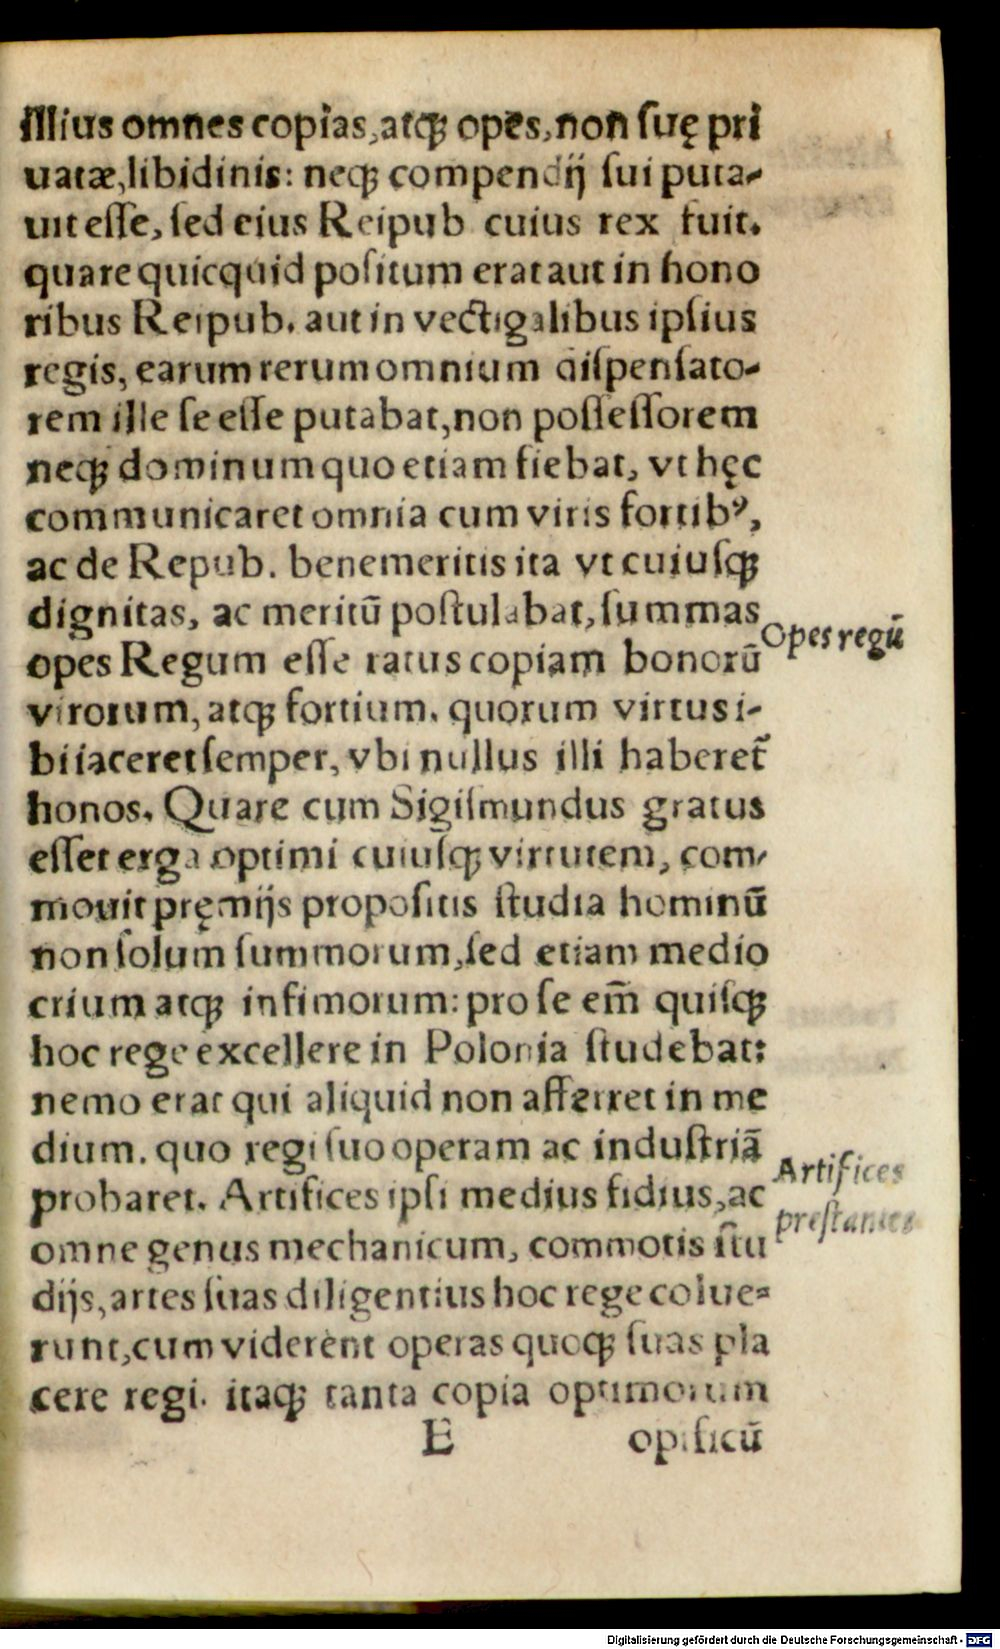 illius omnes copias, atq̃ opes, non ſuę pri
uatæ, libidinis: neq̃ compendij ſui puta-
uit eſſe, ſed eius Reipub cuius rex fuit.
quare quicquid poſitum erat aut in hono
ribus Reipub. aut in vectigalibus ipſius
regis, earum rerum omnium diſpenſato-
rem ille ſe eſſe putabat, non poſſeſſorem
neq̃ dominum quo etiam fiebat, vt hęc
communicaret omnia cum viris fortibꝰ,
ac de Repub. benemeritis ita vt cuiuſq̃
dignitas, ac meritū poſtulabat, ſummas
Opes regū
opes Regum eſſe ratus copiam bonorū
virorum, atq̃ fortium. quorum virtus i-
bi iaceret ſemper, vbi nullus illi haberet̃
honos. Quare cum Sigiſmundus gratus
eſſet erga optimi cuiuſq̃ virtutem, com-
mouit pręmijs propoſitis ſtudia hominū
non ſolum ſummorum, ſed etiam medio
crium atq̃ infimorum: pro ſe em̃ quiſq̃
hoc rege excellere in Polonia ſtudebat:
nemo erat qui aliquid non afferret in me
dium. quo regi ſuo operam ac induſtriā
probaret. Artifices ipſi medius fidius, ac
Artifices
preſtantes
omne genus mechanicum, commotis ſtu
dijs, artes ſuas diligentius hoc rege colue-
runt, cum viderent operas quoq̃ ſuas pla
cere regi. itaq̃ tanta copia optimorum
E opificū
Digitalisierung gefördert durch die Deutsche Forschungsgemeinschaft - DFG